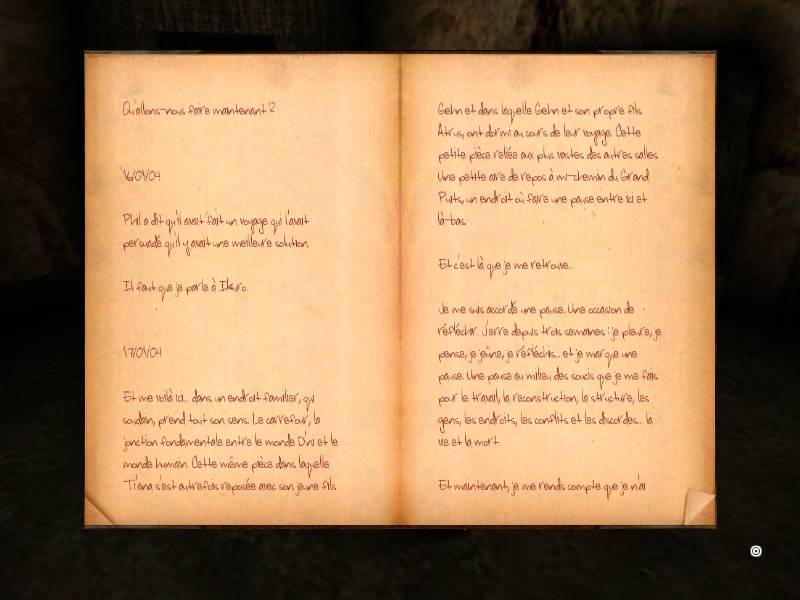 Qu'allons-nous faire maintenant ?
16/01/04
Phil a dit qu'il avait fait un voyage qui l'avait
persuadé qu'il y avait une meilleure solution.
Il faut que je parle à Ikuro.
17/01/04
Et me voilà ici... dans un endroit familier, qui
soudain, prend tout son sens. Le carrefour, la
jonction fondamentale entre le monde D'ni et le
monde humain. Cette même pièce dans laquelle
Ti'ana s'est autrefois reposée avec son jeune fils
Gehn et dans laquelle Gehn et son propre fils
Atrus, ont dormi au cours de leur voyage. Cette
petite pièce reliée aux plus vastes des autres salles.
Une petite aire de repos à mi-chemin du Grand
Puits, un endroit où faire une pause entre ici et
là-bas.
Et c'est là que je me retrouve...
Je me suis accordé une pause. Une occasion de
réfléchir. J'erre depuis trois semaines : je pleure, je
pense, je jeûne, je réfléchis... et je marque une
pause. Une pause au milieu des soucis que je me fais
pour le travail, la reconstruction, la structure, les
gens, les endroits, les conflits et les discordes... la
vie et la mort.
Et maintenant, je me rends compte que je n'ai